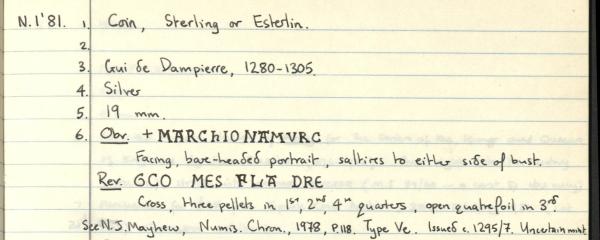 N.1'81. 1. Coin, Sterling or Esterlin.
2.
3. Gui de Dampierre, 1280-1305.
4. Silver
5. 19 mm.
6. Obv. + MARCHIONAMVRC
Facing, bare-headed portrait, saltires to either side of bust.
Rev. GCO MES FLA DRE
Cross, three pellets in 1st, 2nd, 4th quarters, open quatrefoil in 3rd.
See N.J. Mayhew, Numis. Chron., 1978, P.118. Type Ve. Issued c. 1295/7. Uncertain mint